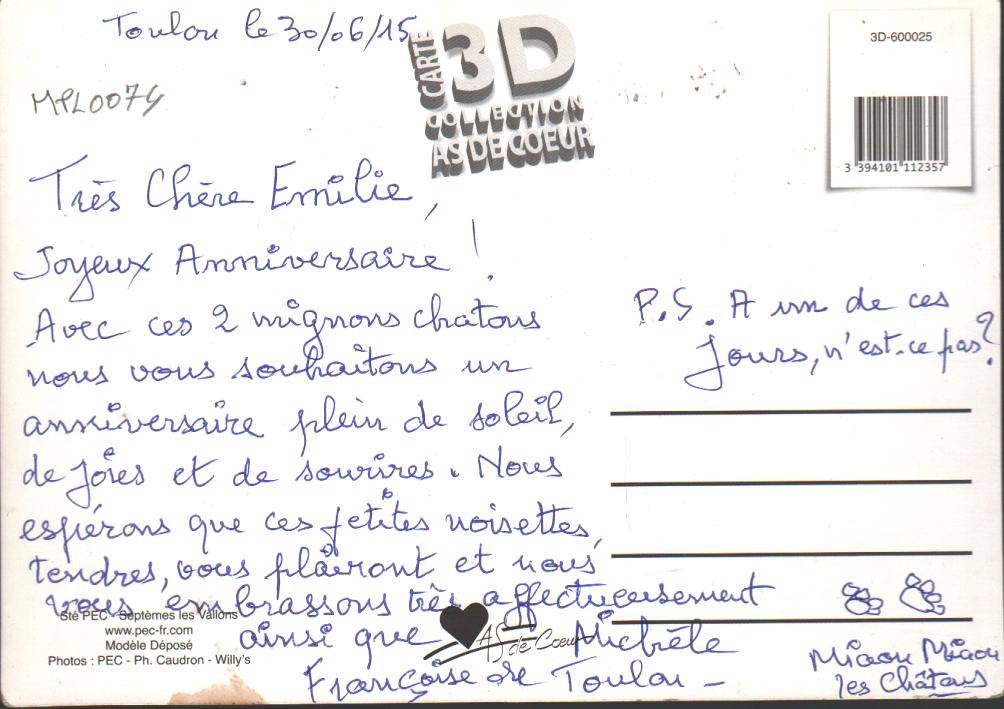 Toulon le 30/06/15
CARTE
3D
COLLECTION
AS DE COEUR
3D-600025
3 394101 112357
MPL0074
Très Chère Emilie,
Joyeux Anniversaire !
Avec ces 2 mignons chatons
nous vous souhaitons un
anniversaire plein de soleil,
de joies et de sourires. Nous
espérons que ces petites noisettes,
tendres, vous plairont et nous
vous embrassons très affectueusement
ainsi que Michèle
Françoise de Toulon -
P.S. A un de ces
jours, n'est-ce pas?
Miaou Miaou
les Châtons
Sté PEC - Septèmes les Vallons
www.pec-fr.com
Modèle Déposé
Photos : PEC - Ph. Caudron - Willy's
AS de Coeur